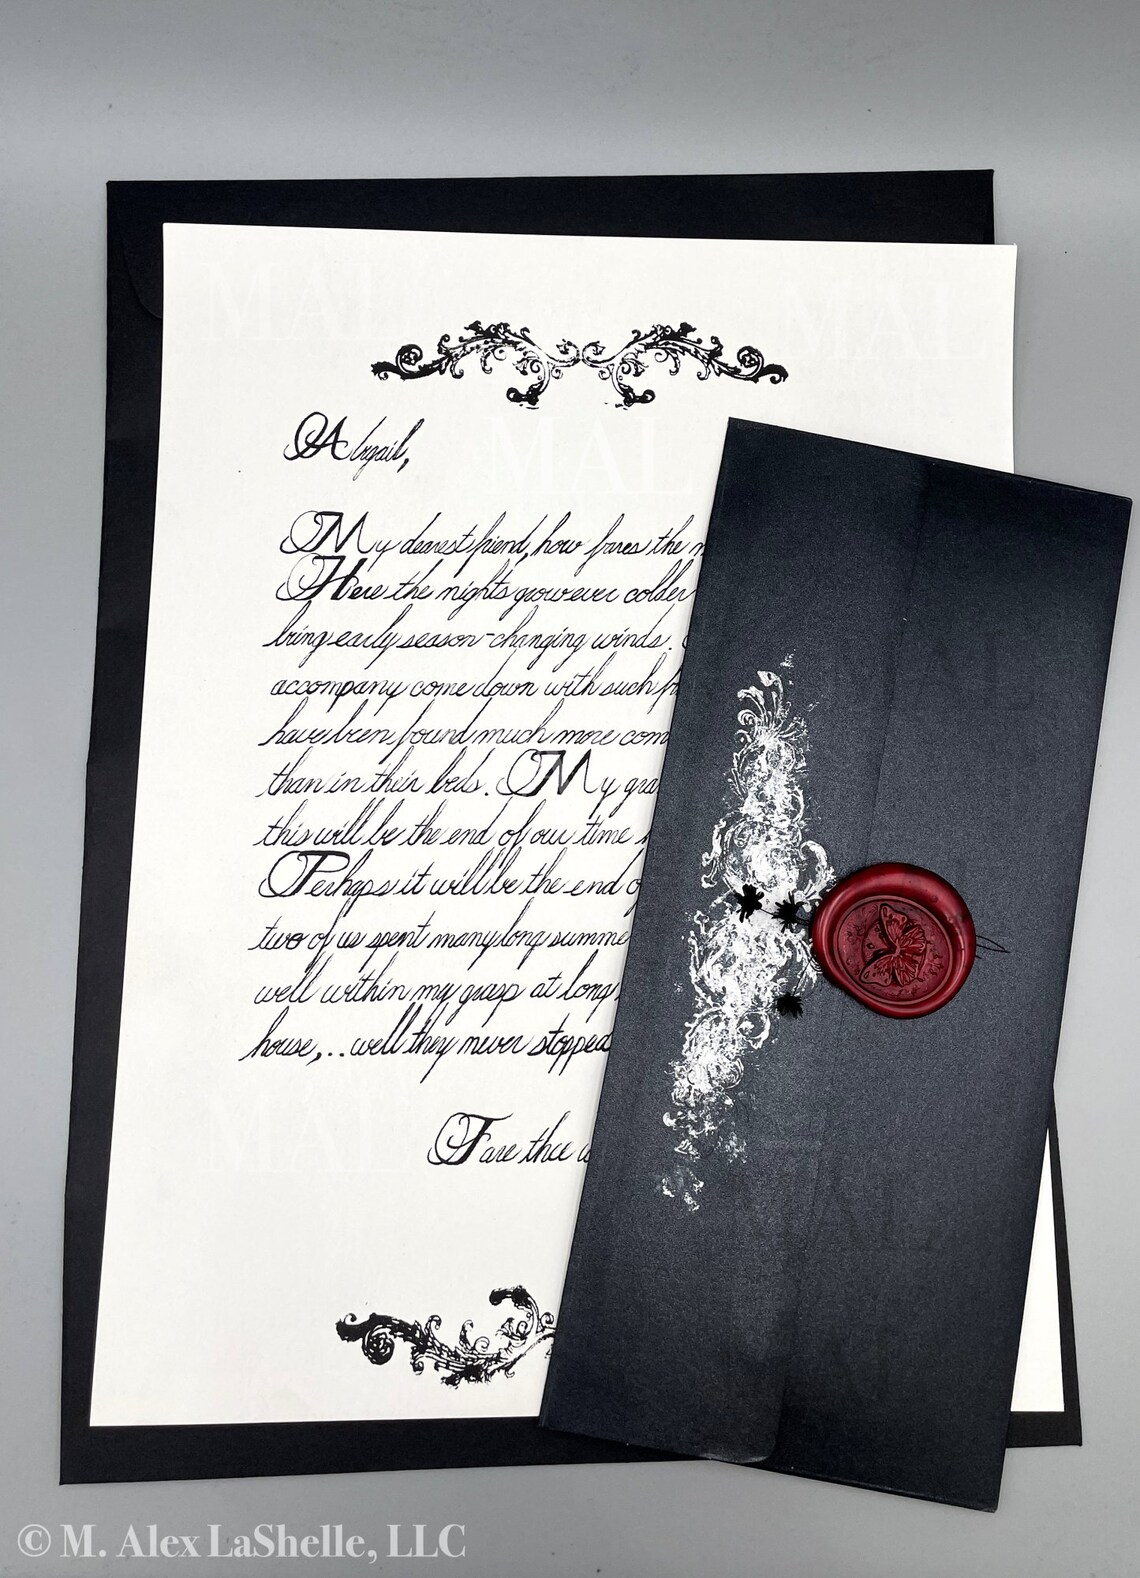 Abigail,
My dearest friend, how fares the
Here the nights grow ever colder
bring early season-changing winds.
accompany come down with such
have been found much more com
than in their beds. My gra
this will be the end of our time
Perhaps it will be the end of
two of us spent many long summe
well within my grasp at long
house,...well they never stopped
Fare thee
MAL
MAL
MAL
© M. Alex LaShelle, LLC